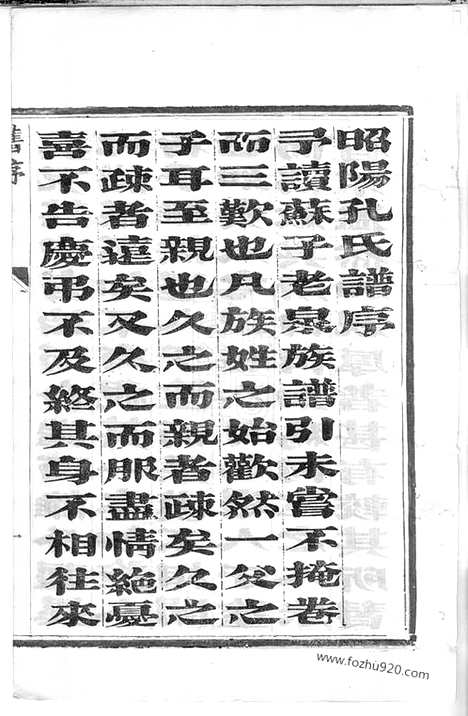 昭陽孔氏譜序
予讀蘇子老泉族譜引未嘗不掩卷
而三歎也凡族姓之始歡然一父之
子耳至親也久之而親者疎矣久之
而疎者遠矣又久之而服盡情絶憂
喜不告慶弔不及終其身不相徃來
舊序
www.fozhu920.com